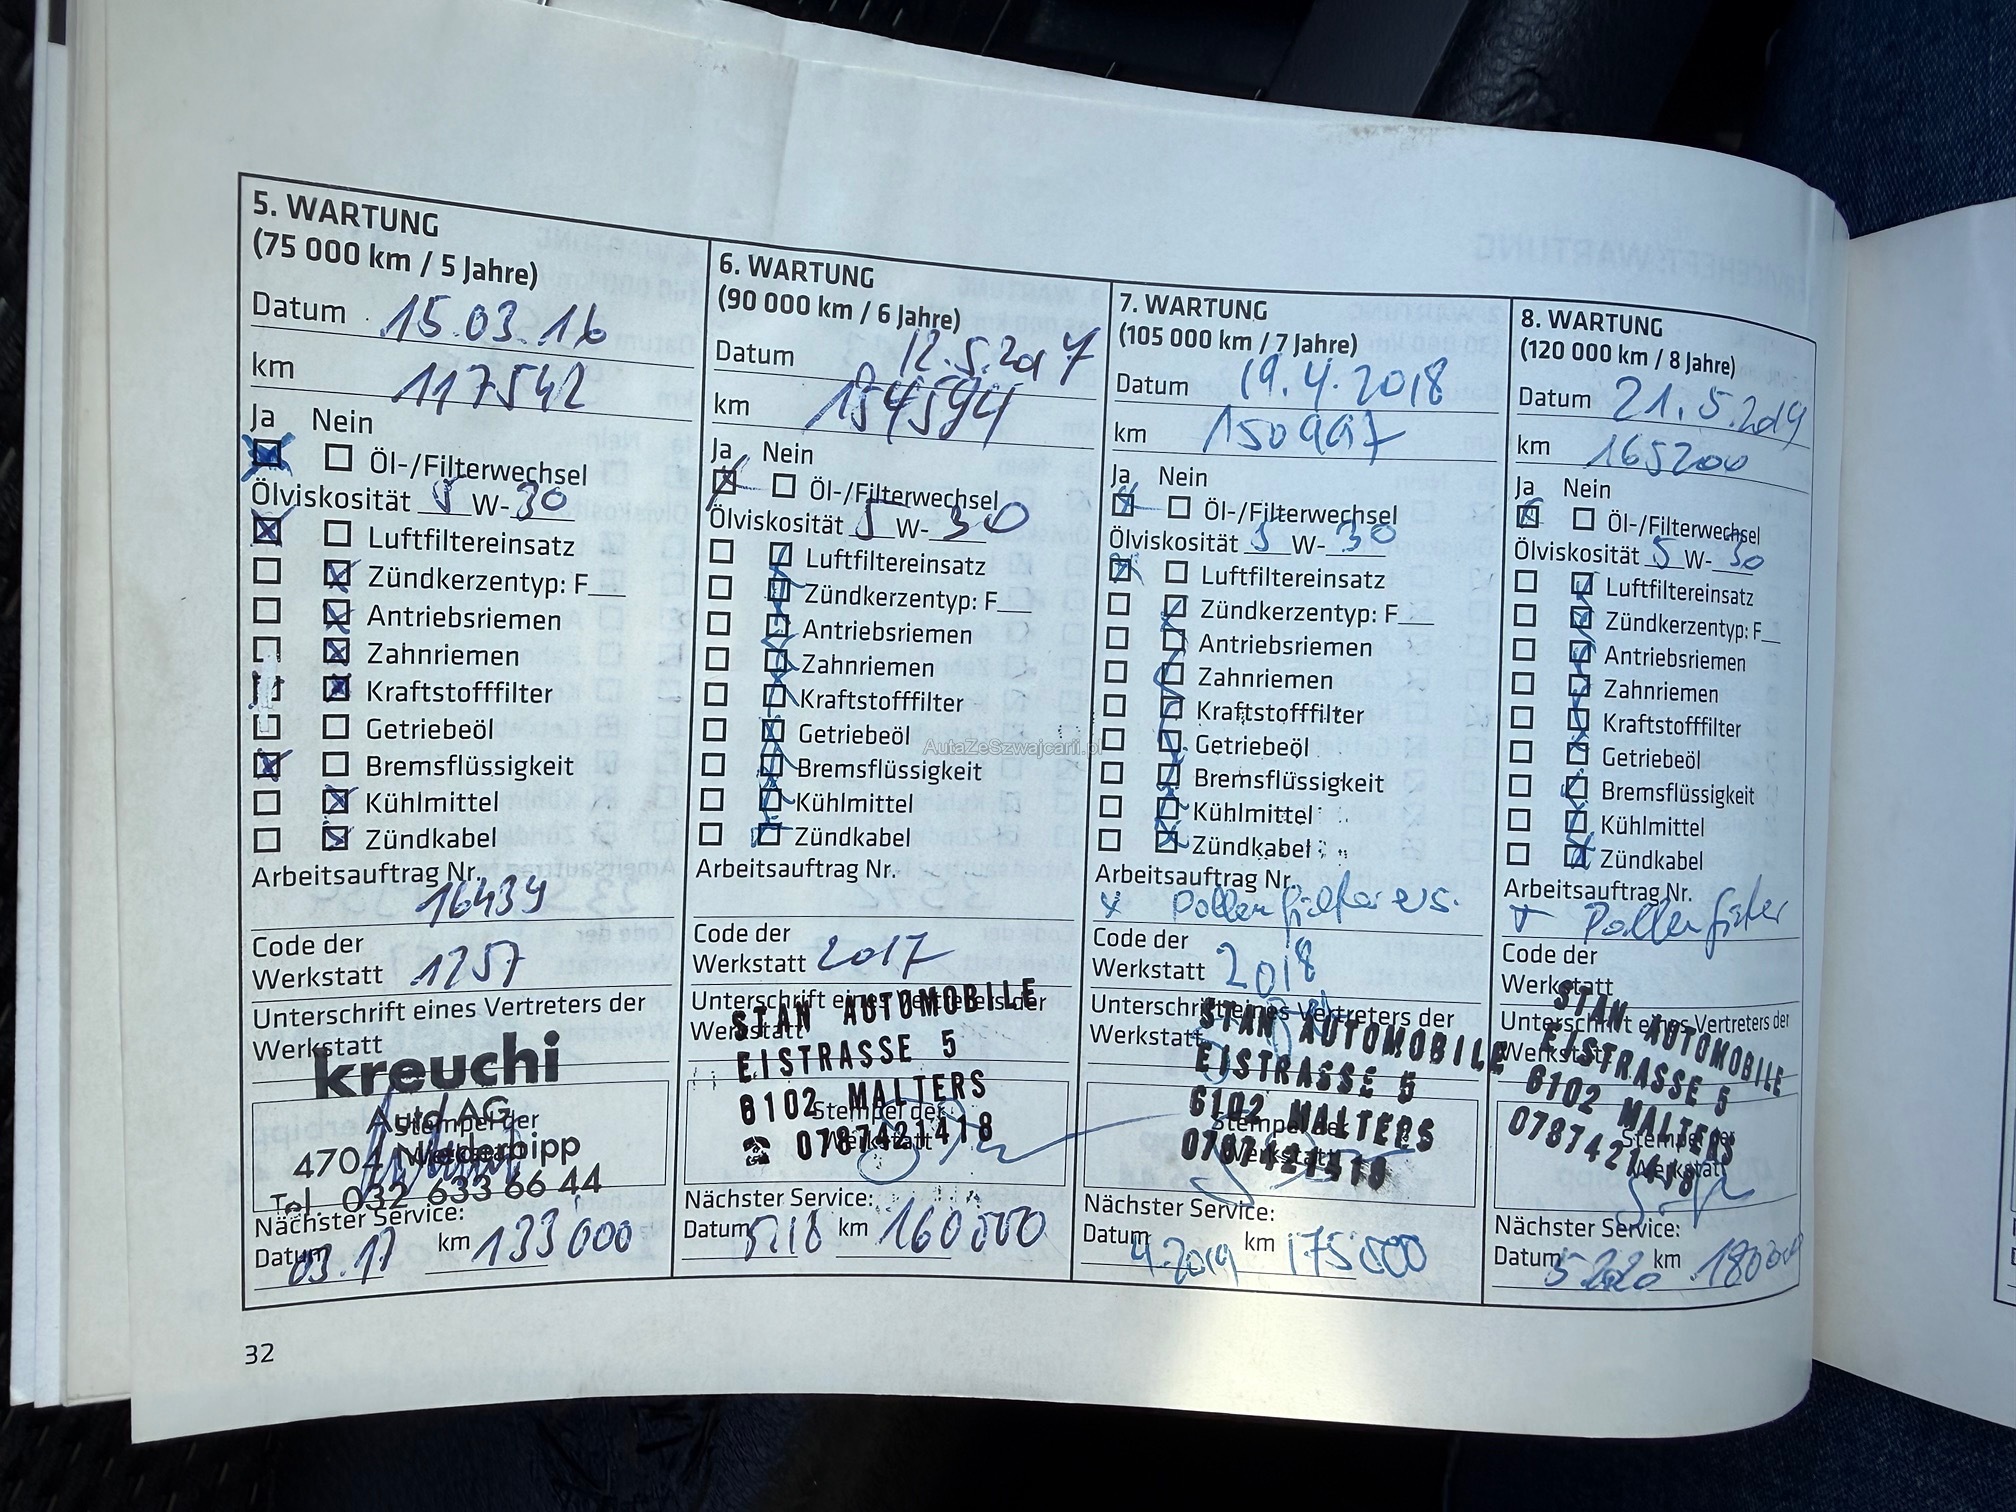 5. WARTUNG
(75 000 km / 5 Jahre)
Datum 15.03.16
km 117542
Ja Nein
Öl-/Filterwechsel
Ölviskosität 5 W-30
Luftfiltereinsatz
Zündkerzentyp: F__
Antriebsriemen
Zahnriemen
Kraftstofffilter
Getriebeöl
Bremsflüssigkeit
Kühlmittel
Zündkabel
Arbeitsauftrag Nr.
16439
Code der
Werkstatt 1257
Unterschrift eines Vertreters der
Werkstatt
kreuchi
Auto AG
Stempel der
4704 Niederbipp
Tel. 032 633 66 44
Nächster Service:
Datum 03.17 km 133000
6. WARTUNG
(90 000 km / 6 Jahre)
Datum 12.5.2017
km
Ja Nein
Öl-/Filterwechsel
Ölviskosität 5 W-30
Luftfiltereinsatz
Zündkerzentyp: F__
Antriebsriemen
Zahnriemen
Kraftstofffilter
Getriebeöl
Bremsflüssigkeit
Kühlmittel
Zündkabel
Arbeitsauftrag Nr.
Code der
Werkstatt 2017
Unterschrift eines Vertreters der
Werkstatt
STAN AUTOMOBILE
EISTRASSE 5
6102 MALTERS
Stempel der
Werkstatt
☎ 0787421418
Nächster Service:
Datum 5.18 km 160000
7. WARTUNG
(105 000 km / 7 Jahre)
Datum 19.4.2018
km 150997
Ja Nein
Öl-/Filterwechsel
Ölviskosität 5 W-30
Luftfiltereinsatz
Zündkerzentyp: F__
Antriebsriemen
Zahnriemen
Kraftstofffilter
Getriebeöl
Bremsflüssigkeit
Kühlmittel
Zündkabel
Arbeitsauftrag Nr.
x Pollenfilter ers.
Code der
Werkstatt 2018
Unterschrift eines Vertreters der
Werkstatt
STAN AUTOMOBILE
EISTRASSE 5
6102 MALTERS
Stempel der
Werkstatt
Nächster Service:
Datum 4.2019 km 175000
8. WARTUNG
(120 000 km / 8 Jahre)
Datum 21.5.2019
km 165200
Ja Nein
Öl-/Filterwechsel
Ölviskosität 5 W-30
Luftfiltereinsatz
Zündkerzentyp: F__
Antriebsriemen
Zahnriemen
Kraftstofffilter
Getriebeöl
Bremsflüssigkeit
Kühlmittel
Zündkabel
Arbeitsauftrag Nr.
+ Pollenfilter
Code der
Werkstatt
Unterschrift eines Vertreters der
Werkstatt
STAN AUTOMOBILE
EISTRASSE 5
6102 MALTERS
0787421418
Stempel der
Werkstatt
Nächster Service:
Datum 5.2020 km 180000
AutaZeSzwajcarii.pl
32